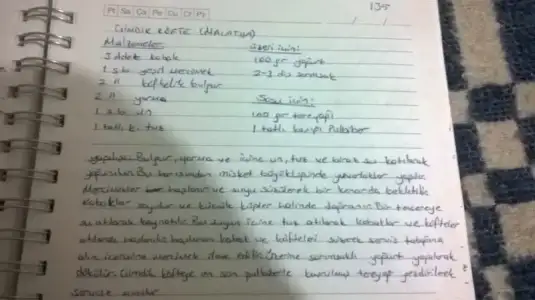 Pt Sa Ça Pe Cu Ct Pz
135
CIMDIK KÖFTE (MALATYA)
Malzemeler
3 adet kabak
1 s.b. yeşil mercimek
2 " köftelik bulgur
2 " yarma
1 s.b. un
1 tatlı k. tuz
Üzeri için:
100 gr yoğurt
2-3 diş sarımsak
Sosu için:
100 gr tereyağı
1 tatlı kaşığı Pulbiber
yapılışı: Bulgur, yarma ve içine un, tuz ve biraz su katılarak
yoğurulur. Bu karışımdan misket büyüklüğünde yuvarlaklar yapılır.
Mercimekler haşlanır ve suyu süzülerek bir kenarda bekletilir.
Kabaklar soyulur ve küçük küpler halinde doğranır. Bir tencereye
su atılarak kaynatılır. Bu suyun içine tuz atılarak kabaklar ve köfteler
atılarak haşlanır. haşlanan kabak ve köfteleri süzerek servis tabağına
alın içerisine mercimek ilave edilir. Üzerine sarımsaklı yoğurt yapılarak
dökülür. Cimdik köfteye en son pulbiberle kavrulmuş tereyağ gezdirilerek
servise sunulur